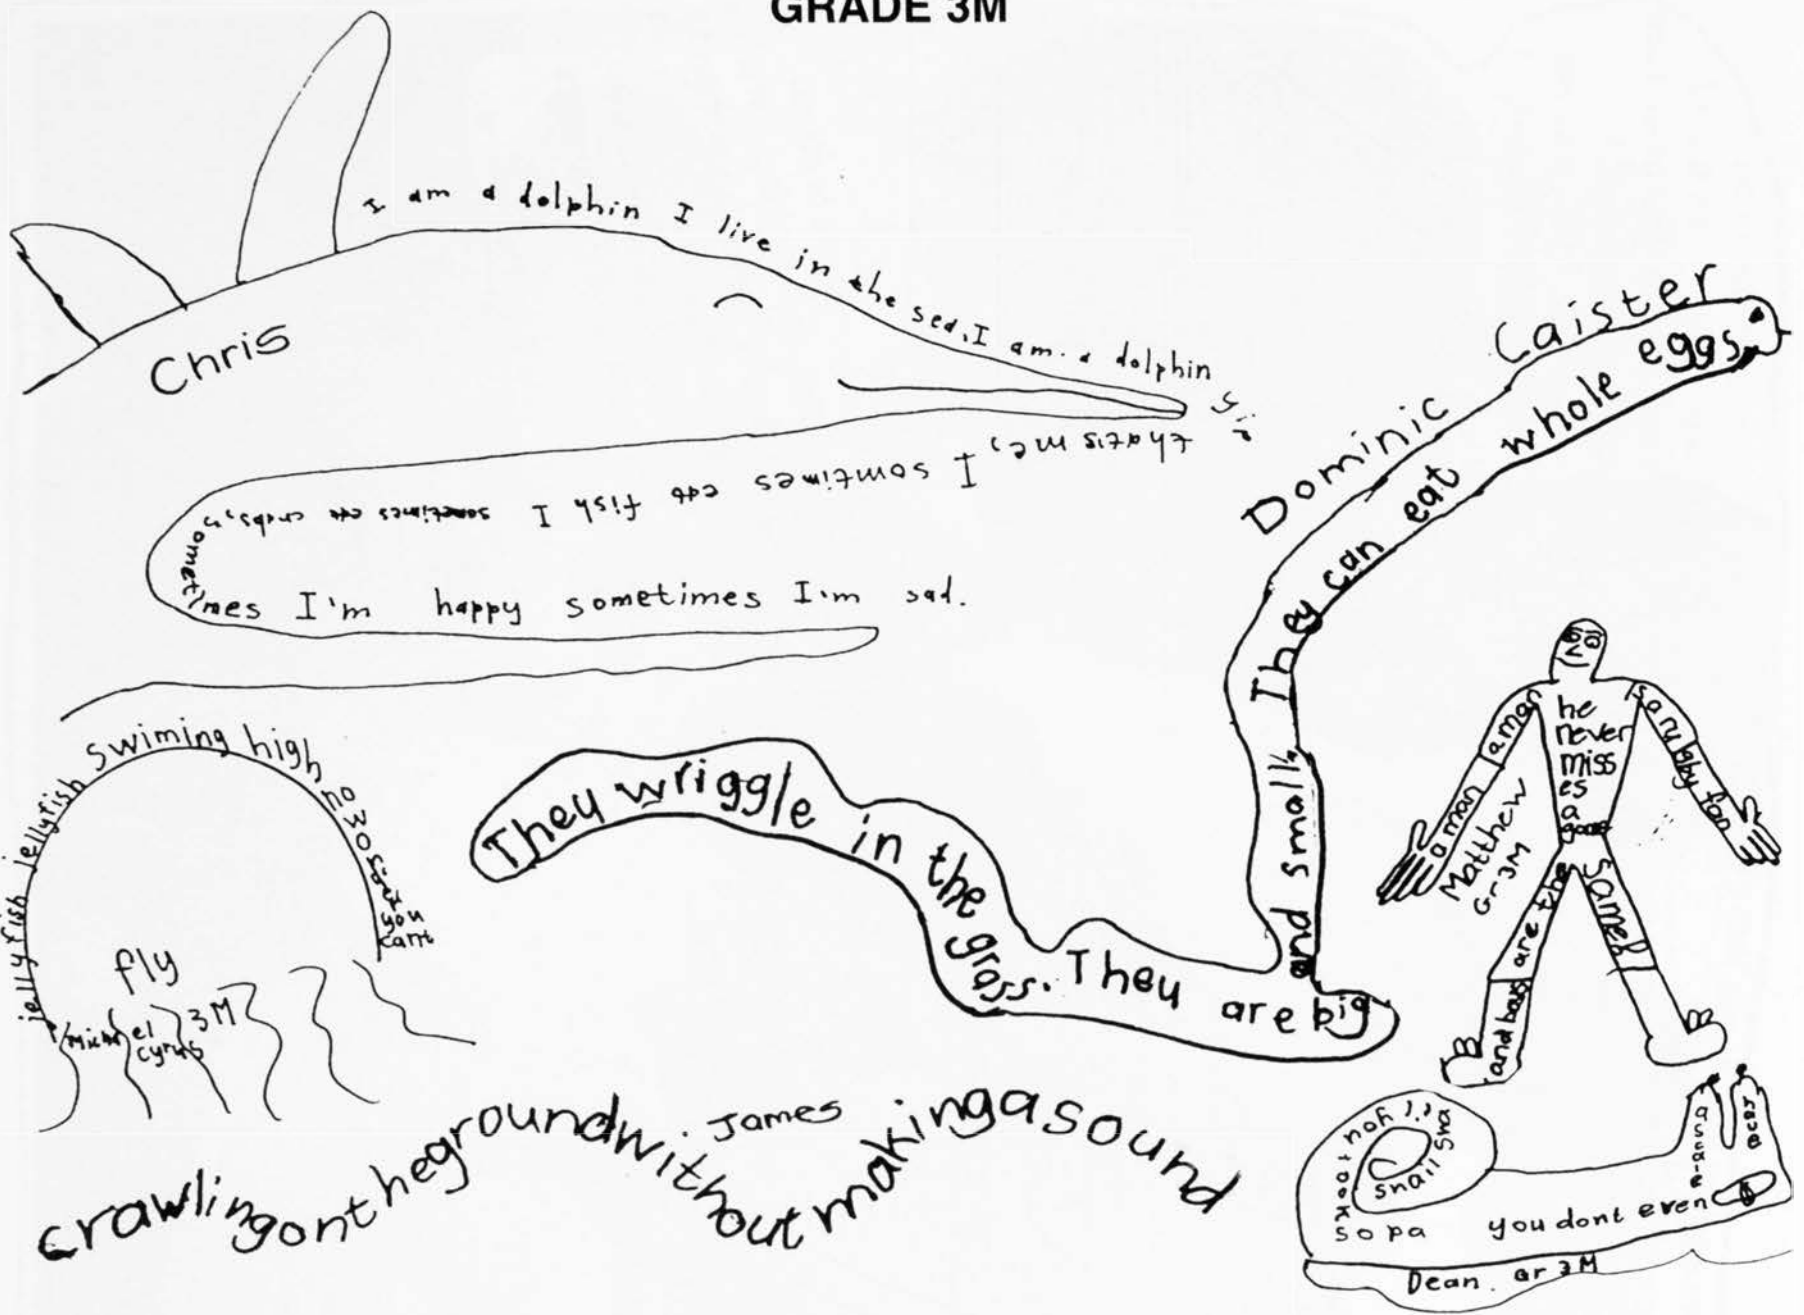 GRADE 3M
I am a dolphin I live in the sea, I am a dolphin
thatis me, I somtimes eat fish I sometimes eat crabs,
sometimes I'm happy sometimes I'm sad.
Chris
Dominic Caister
They wriggle in the grass. They are big
and small. They can eat whole eggs.
jellyfish jellyfish swiming high no 30 you cant
fly
Michael Cyrus 3M
he
never
miss
es
a
game
a man
is a rugby fan
and boys are the
same!
Matthew
Gr 3M
crawlingonthegroundwithoutmakingasound
James
snail sna
il you
look
so pa
you dont even
Dean. Gr 3M